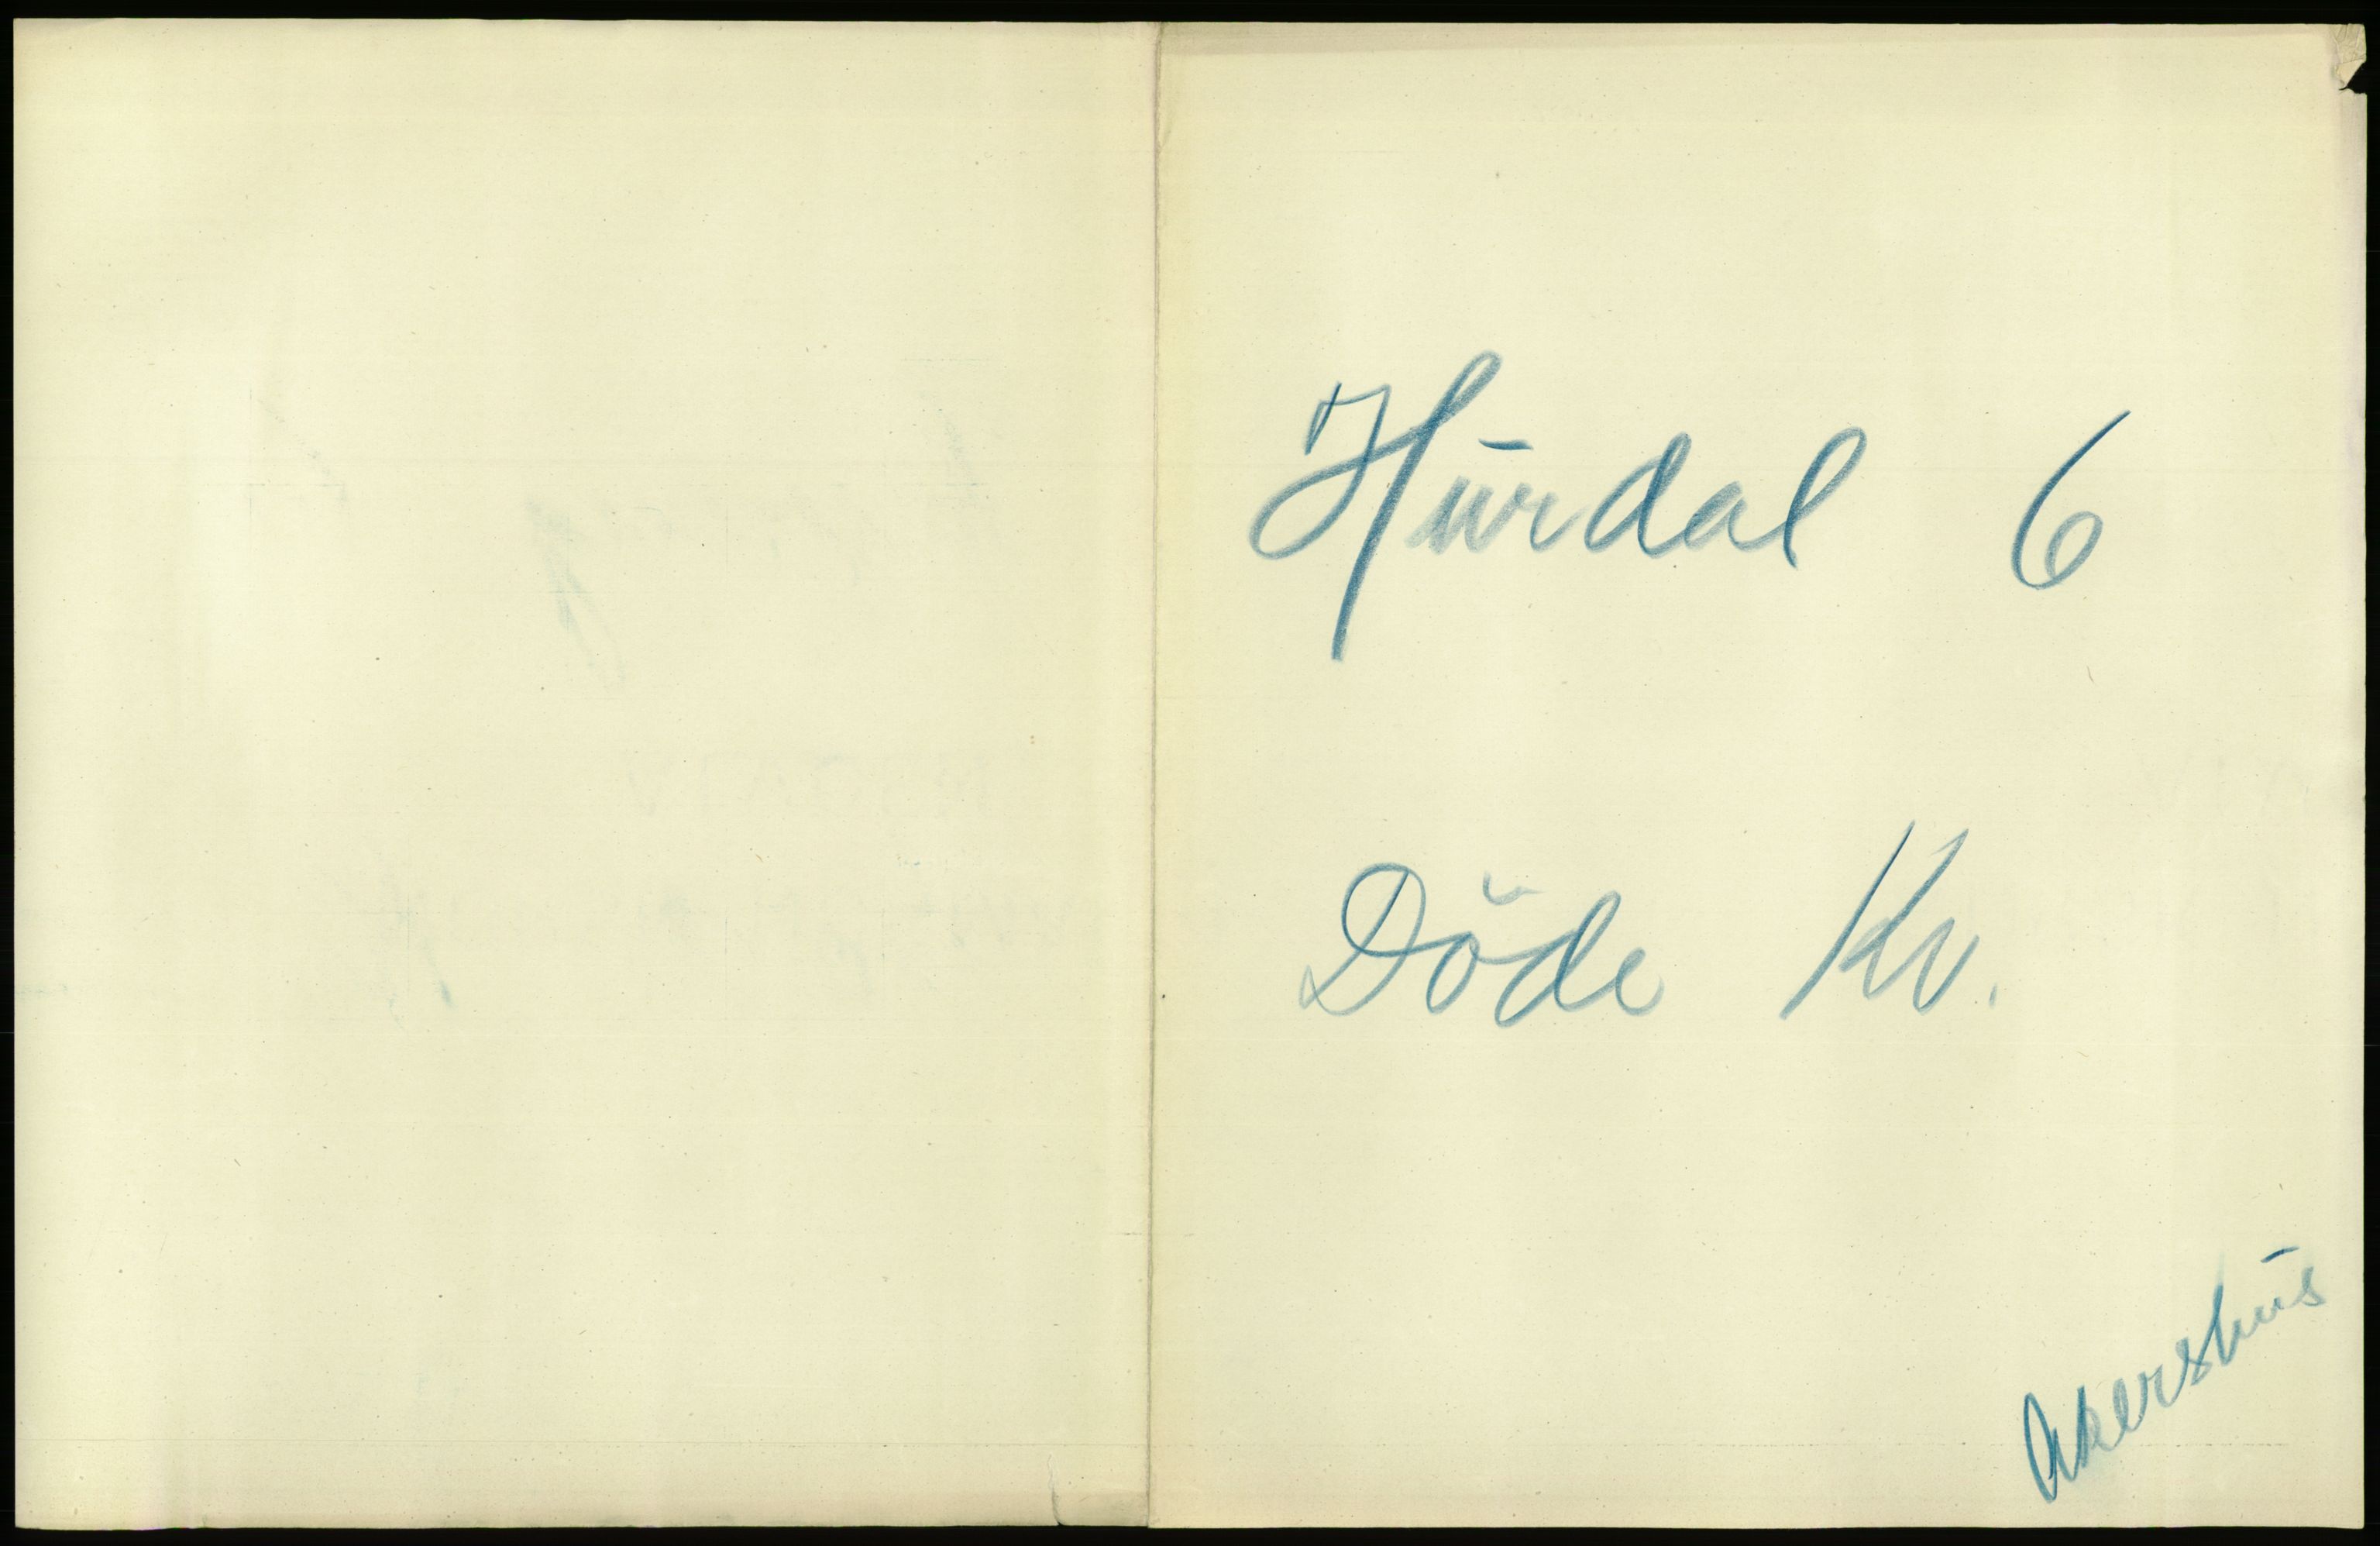 Hurdal 6
Döde Kv.
Akershus